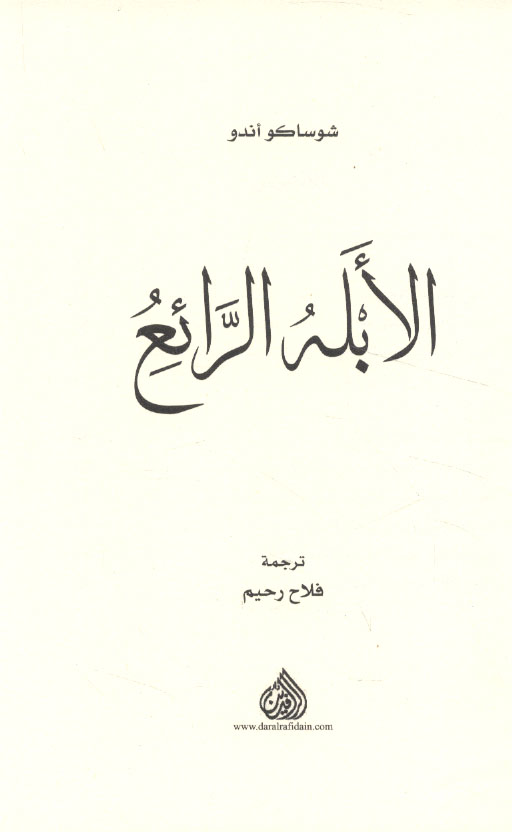 شوساكو أندو
الأَبْلَهُ الرَّائِعُ
ترجمة
فلاح رحيم
الرافدين
www.daralrafidain.com